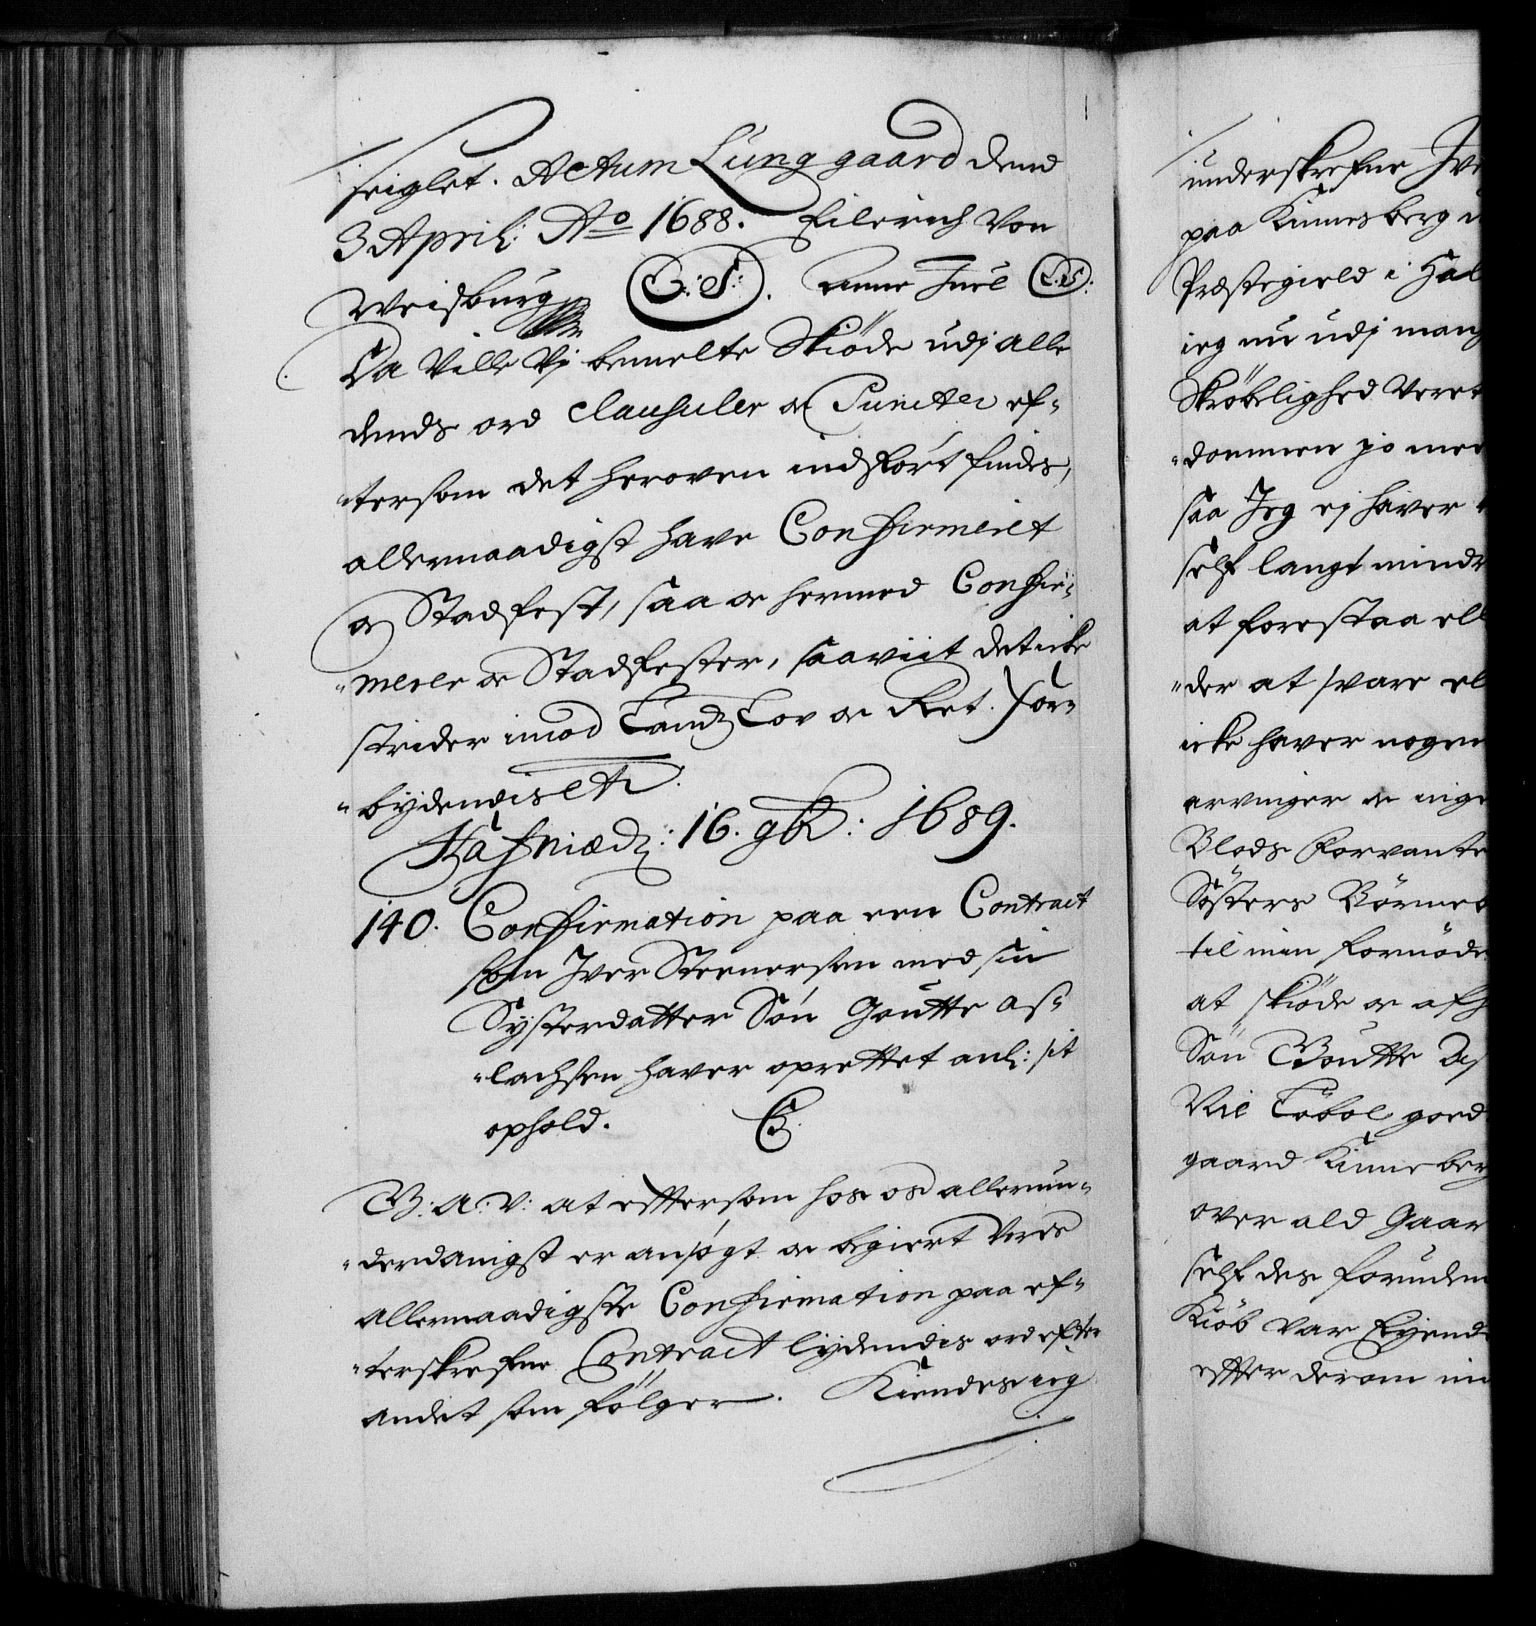 seiglet. Actum Lunggaard dend
3 April: Ao 1688. Eilerich Von
Weisburg L:S: Anne Juel L:S:
Da Ville Vj bemelte Skiøde udj alle
dends ord Clausuler oc Puncter ef-
tersom det heroven indført findes,
allernaadigst have Confirmerit
oc Stadfest, saa oc hermed Confir-
merer oc Stadfester, saaviit det icke
strider imod Landz Lov oc Ret. For-
bydendis etc.
Hafniæ d: 16. 9br: 1689.
140. Confirmation paa een Contract
som Iver Steenersen med sin
Systerdatter Søn Goutte As-
lachsen haver oprettet anl: sit
ophold.
G: A: V: at effersom hos os allerun-
derdanigst er ansøgt oc begiert Vores
allernaadigste Confirmation paa ef-
terskrefne Contract lydendis ord efter
andet som følger. Kiendes ieg
underskrefne Ive
paa Kinnesberg
Præstegield i Hal
ieg nu udj mang
Skrøbelighed Veret
dommen jo mee
saa Jeg ej haver
self langt mindr
at forestaa ell
der at svare el
icke haver nogen
arvinger oc inge
Blods Forvante
Søsters Børneb
til min fornøde
at skiøde oc afh
Søn Goutte As
Vee Løbol goed
gaard Kinneberg
over ald Gaar
self des foruden
Kiøb var Eyend
effter derom